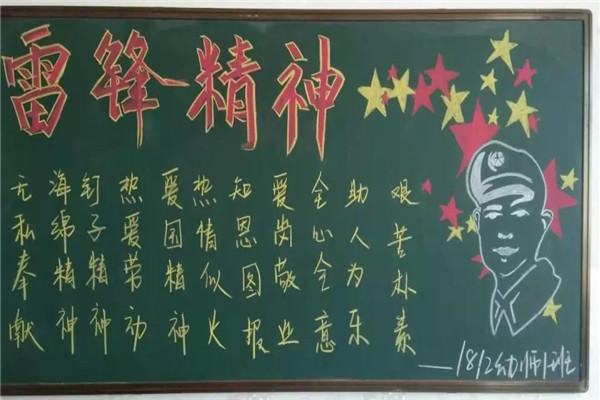 雷锋精神
无私奉献
海绵精神
钉子精神
热爱劳动
爱国精神
热情似火
知恩图报
爱岗敬业
全心全意
助人为乐
艰苦朴素
——1812幼师班